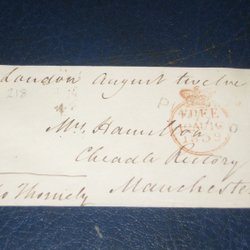 London August twelve
218
FREE
1839
Mrs. Hamilton
Cheadle Rectory
Manchester
Thornely